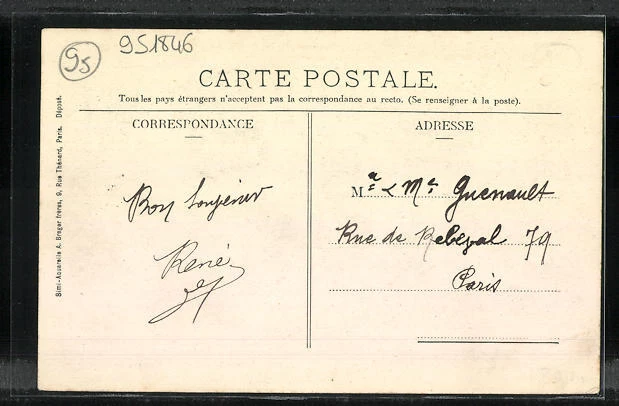 95
951846
CARTE POSTALE.
Tous les pays étrangers n'acceptent pas la correspondance au recto. (Se renseigner à la poste).
CORRESPONDANCE
ADRESSE
Bon Souvenir
René
M
Guenault
Rue de Rebeval 79
Paris
Simi-Aquarelle A. Breger frères, 9, Rue Thénard, Paris. Déposé.